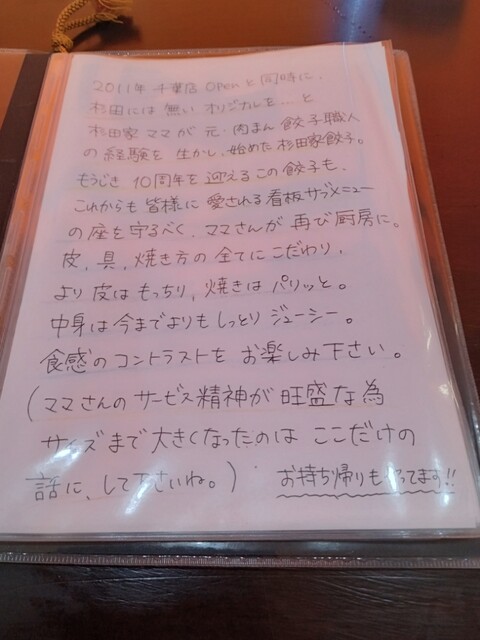 2011年 千葉店 Openと同時に、
杉田には無いオリジナルを…と
杉田家ママが元・肉まん餃子職人
の経験を生かし、始めた杉田家餃子。
もうじき10周年を迎えるこの餃子も、
これからも皆様に愛される看板サブメニュー
の座を守るべく、ママさんが再び厨房に。
皮、具、焼き方の全てにこだわり、
より皮はもっちり、焼きはパリッと。
中身は今までよりもしっとりジューシー。
食感のコントラストをお楽しみ下さい。
(ママさんのサービス精神が旺盛な為
サイズまで大きくなったのはここだけの
話に、して下さいね。)
お持ち帰りもやってます!!